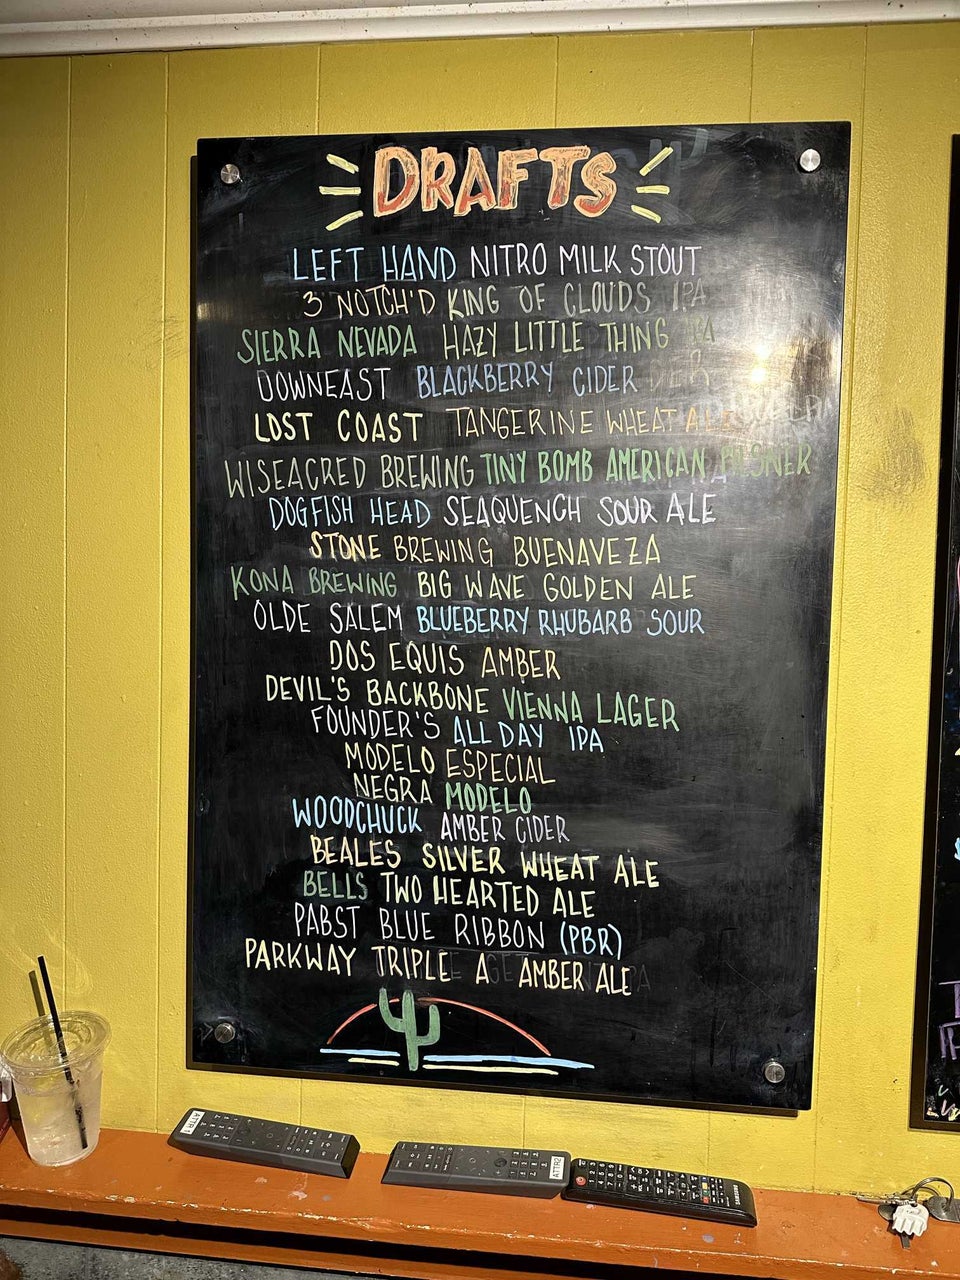 DRAFTS
LEFT HAND NITRO MILK STOUT
3 NOTCH'D KING OF CLOUDS IPA
SIERRA NEVADA HAZY LITTLE THING IPA
DOWNEAST BLACKBERRY CIDER
LOST COAST TANGERINE WHEAT ALE
WISEACRED BREWING TINY BOMB AMERICAN PILSNER
DOGFISH HEAD SEAQUENCH SOUR ALE
STONE BREWING BUENAVEZA
KONA BREWING BIG WAVE GOLDEN ALE
OLDE SALEM BLUEBERRY RHUBARB SOUR
DOS EQUIS AMBER
DEVIL'S BACKBONE VIENNA LAGER
FOUNDER'S ALL DAY IPA
MODELO ESPECIAL
NEGRA MODELO
WOODCHUCK AMBER CIDER
BEALES SILVER WHEAT ALE
BELLS TWO HEARTED ALE
PABST BLUE RIBBON (PBR)
PARKWAY TRIPLE A AMBER ALE
ATTR 1
ATTR2
SAMSUNG